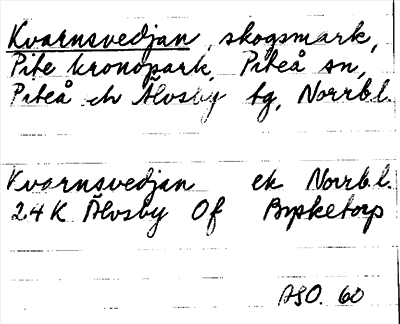 Kvarnsvedjan, skogsmark,
Pite kronopark, Piteå sn,
Piteå och Älvsby tg, Norrb.l.
Kvarnsvedjan ek Norrb.l.
24K Älvsby 0f Byske­torp
ASO. 60